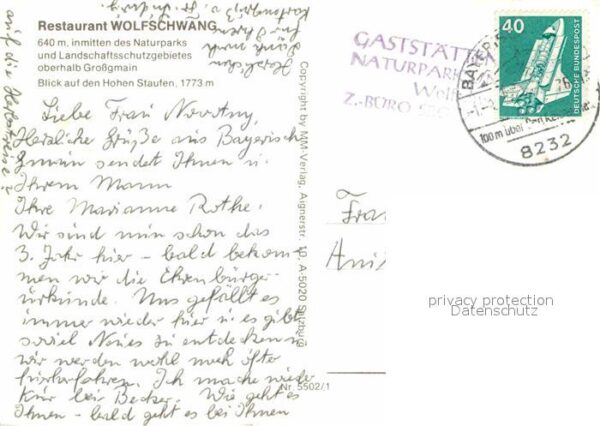 Restaurant WOLFSCHWANG
640 m, inmitten des Naturparks
und Landschaftsschutzgebietes
oberhalb Großgmain
Blick auf den Hohen Staufen, 1773 m
Liebe Frau Novotny,
Herzliche Grüße aus Bayerisch
Gmain sendet Ihnen u.
Ihrem Mann
Ihre Marianne Rothe.
Wir sind nun schon das
3. Jahr hier - bald bekom-
men wir die Ehrenbürger-
urkunde. Uns gefällt es
immer wieder hier u. es gibt
soviel Neues zu entdecken
wir werden wohl noch öfter
hierherfahren. Ich mache wieder
Kur bei Becker. Wie geht es
Ihnen - bald geht es bei Ihnen
auf die Herbstreise?
Herzlichen
Dank noch
für Ihren
Kartengruß
Copyright by MM-Verlag, Aignerstr. 10, A-5020 Salzburg
Nr. 5502/1
GASTSTÄTTE
NATURPARK
Wolf
Z.-BÜRO
40
DEUTSCHE BUNDESPOST
100m über
8232
Frau
privacy protection
Datenschutz